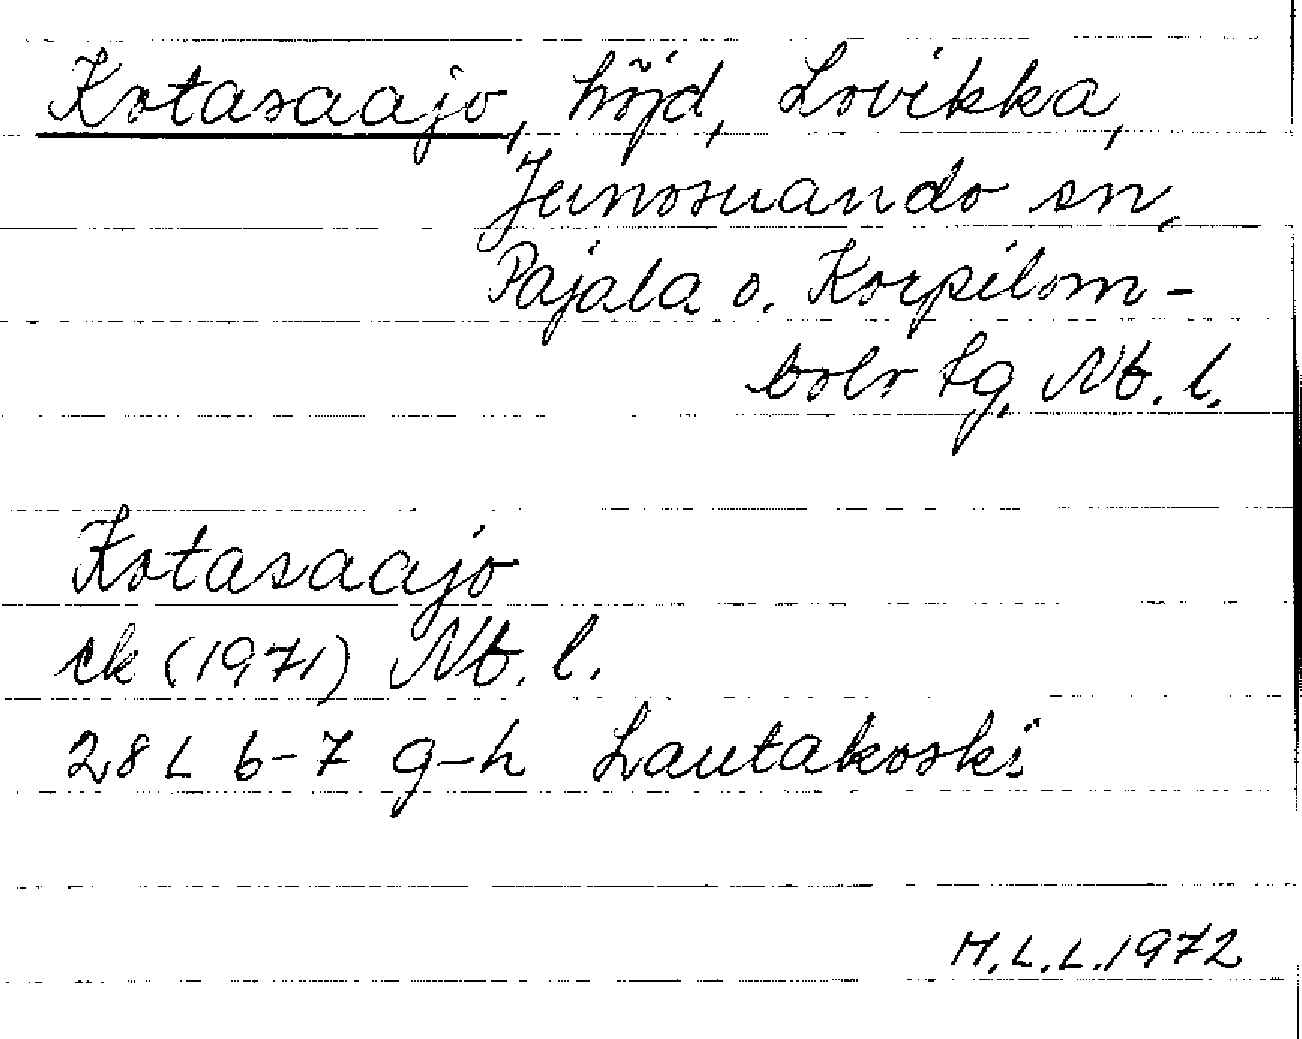 Kotasaajo, höjd, Lovikka,
Junosuando sn,
Pajala o. Korpilom-
bolo tg, Nb. l.
Kotasaajo
ek (1971) Nb. l.
28 L 6-7 g-h Lautakoski
M.L.L. 1972